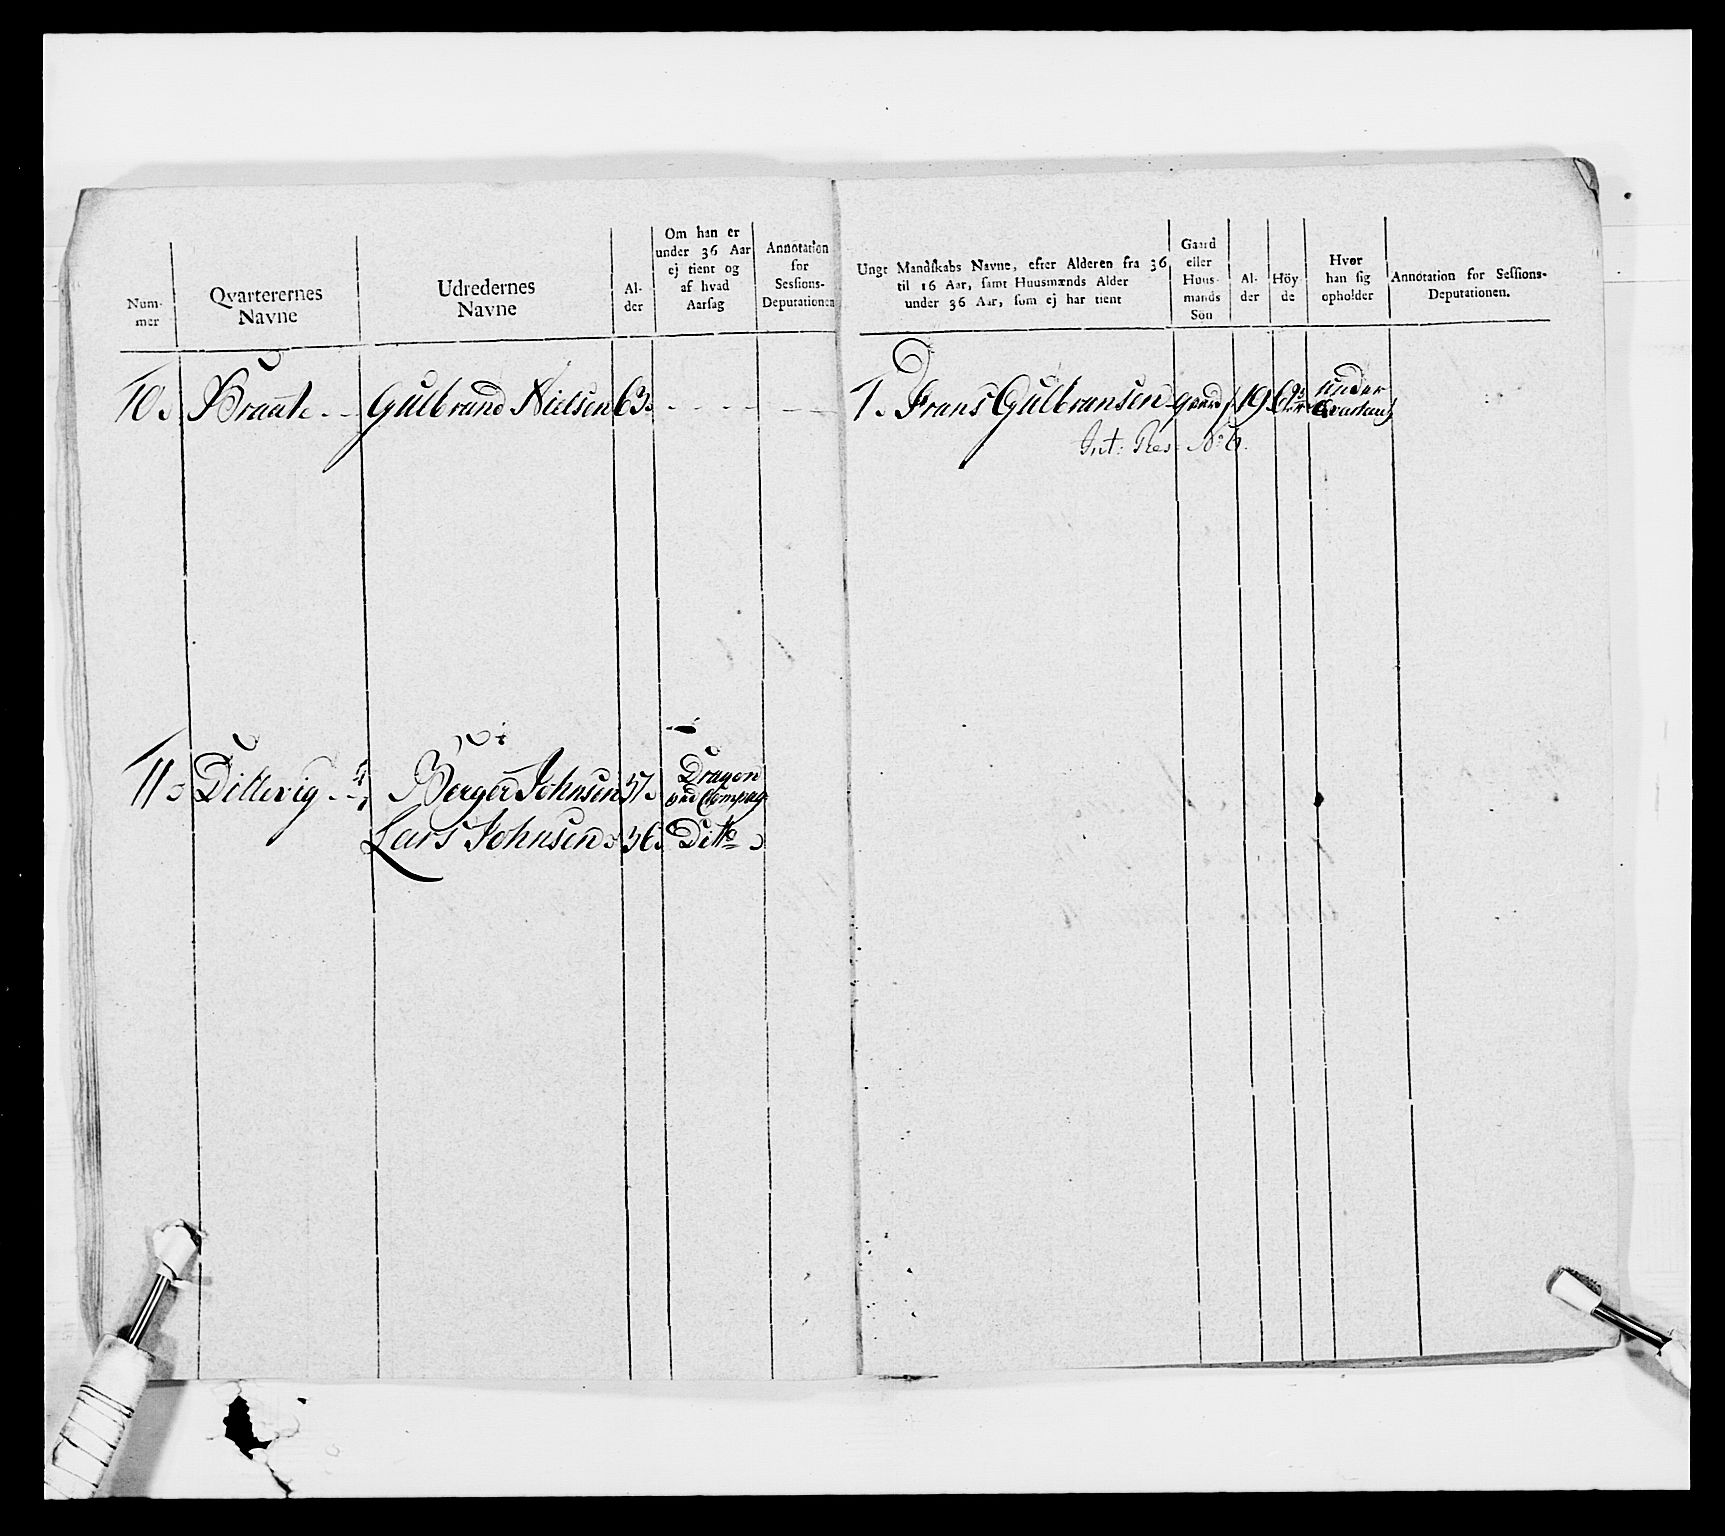 Num-
mer
Qvarterernes
Navne
Udredernes
Navne
Al-
der
Om han er
under 36 Aar
ej tient og
af hvad
Aarsag
Annotation
for
Sessions-
Deputationen
Unge Mandskabs Navne, efter Alderen fra 36
til 16 Aar, samt Huusmænds Alder
under 36 Aar, som ej har tient
Gaard
eller
Huus-
mands
Søn
Al-
der
Høy-
de
Hvor
han sig
opholder
Annotation for Sessions-
Deputationen.
10. Braate - - Gulbrand Nielsen 63. - - - - - -
1. Frans Gulbransen gaard 19 under
Int: Res: No 6.
11 Dillevig Berger Johnsen 37. Dragon
ved Compag
Lars Johnsen 36. Ditto